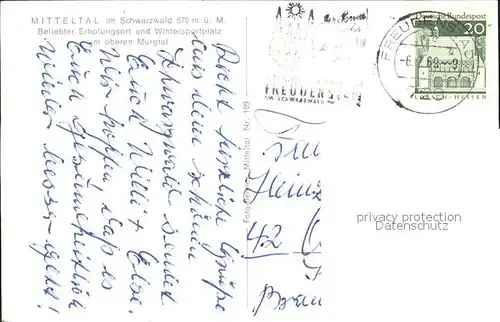 MITTELTAL im Schwarzwald 570 m ü. M.
Beliebter Erholungsort und Wintersportplatz
am oberen Murgtal
Recht herzliche Grüße
aus dem schönen
Schwarzwald sendet
Euch Willi + Else.
Wir hoffen, daß es
Euch gesundheitlich
wieder besser geht!
Mitteltal Nr. 109
FREUDENSTADT
IM SCHWARZWALD
FREUDENS
-6. 7. 69 - 9
Deutsche Bundespost
20
LORSCH/HESSEN
Heinz
42
privacy protection
Datenschutz